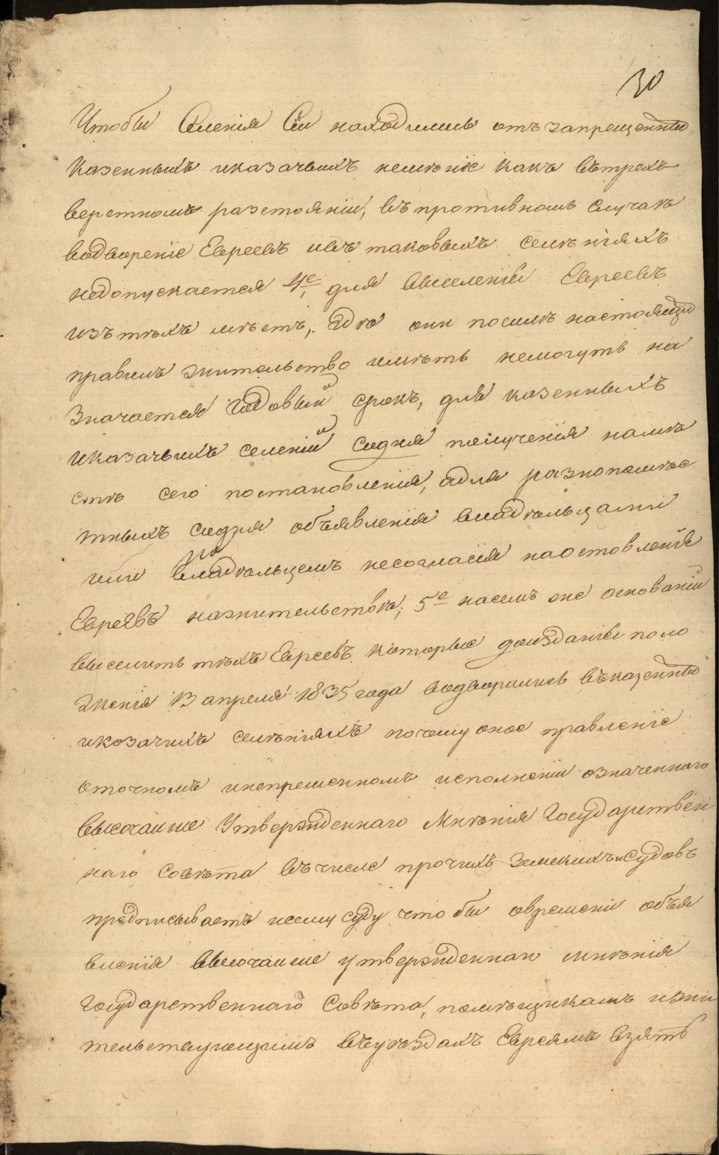 30
Чтобы Селенія Сіи находились отъ запрещенныхъ
казенныхъ иказачьихъ неменіе какъ вътрехъ
верстномъ разстояніи, въпротивномъ случаѣ
водвореніе Евреевъ ивъ таковыхъ селеніяхъ
недопускается 4е, для выселенія Евреевъ
изътѣхъ мѣстъ, гдѣ они посимъ настоящимъ
правилъ жительство имѣть немогутъ на
значается годовый срокъ, для казенныхъ
иказачьихъ селеній содня полученія намѣ
стѣ сего постановленія, адля разнопомѣс
тныхъ содня объявленія владѣльцами
или владѣльцемъ несогласія наоставленія
Евреевъ нажительствѣ; 5е насемъ же основаніи
выселить тѣхъ Евреевъ которые доизданія поло
женія 13 апреля 1835 года водворились въказенныхъ
икозачихъ селѣніяхъ почему оное правленіе
оточномъ инепременномъ исполненіи означеннаго
высочайше Утвержденнаго Мнѣнія Государствен
наго Совѣта вчисле прочихъ земскихъ судовъ
предписываетъ исему суду чтобы овремени объя
вленія высочайше утвержденнаго мнѣнія
Государственнаго Совѣта, помѣщикамъ ижи
тельствующимъ въуѣздахъ Евреямъ взять